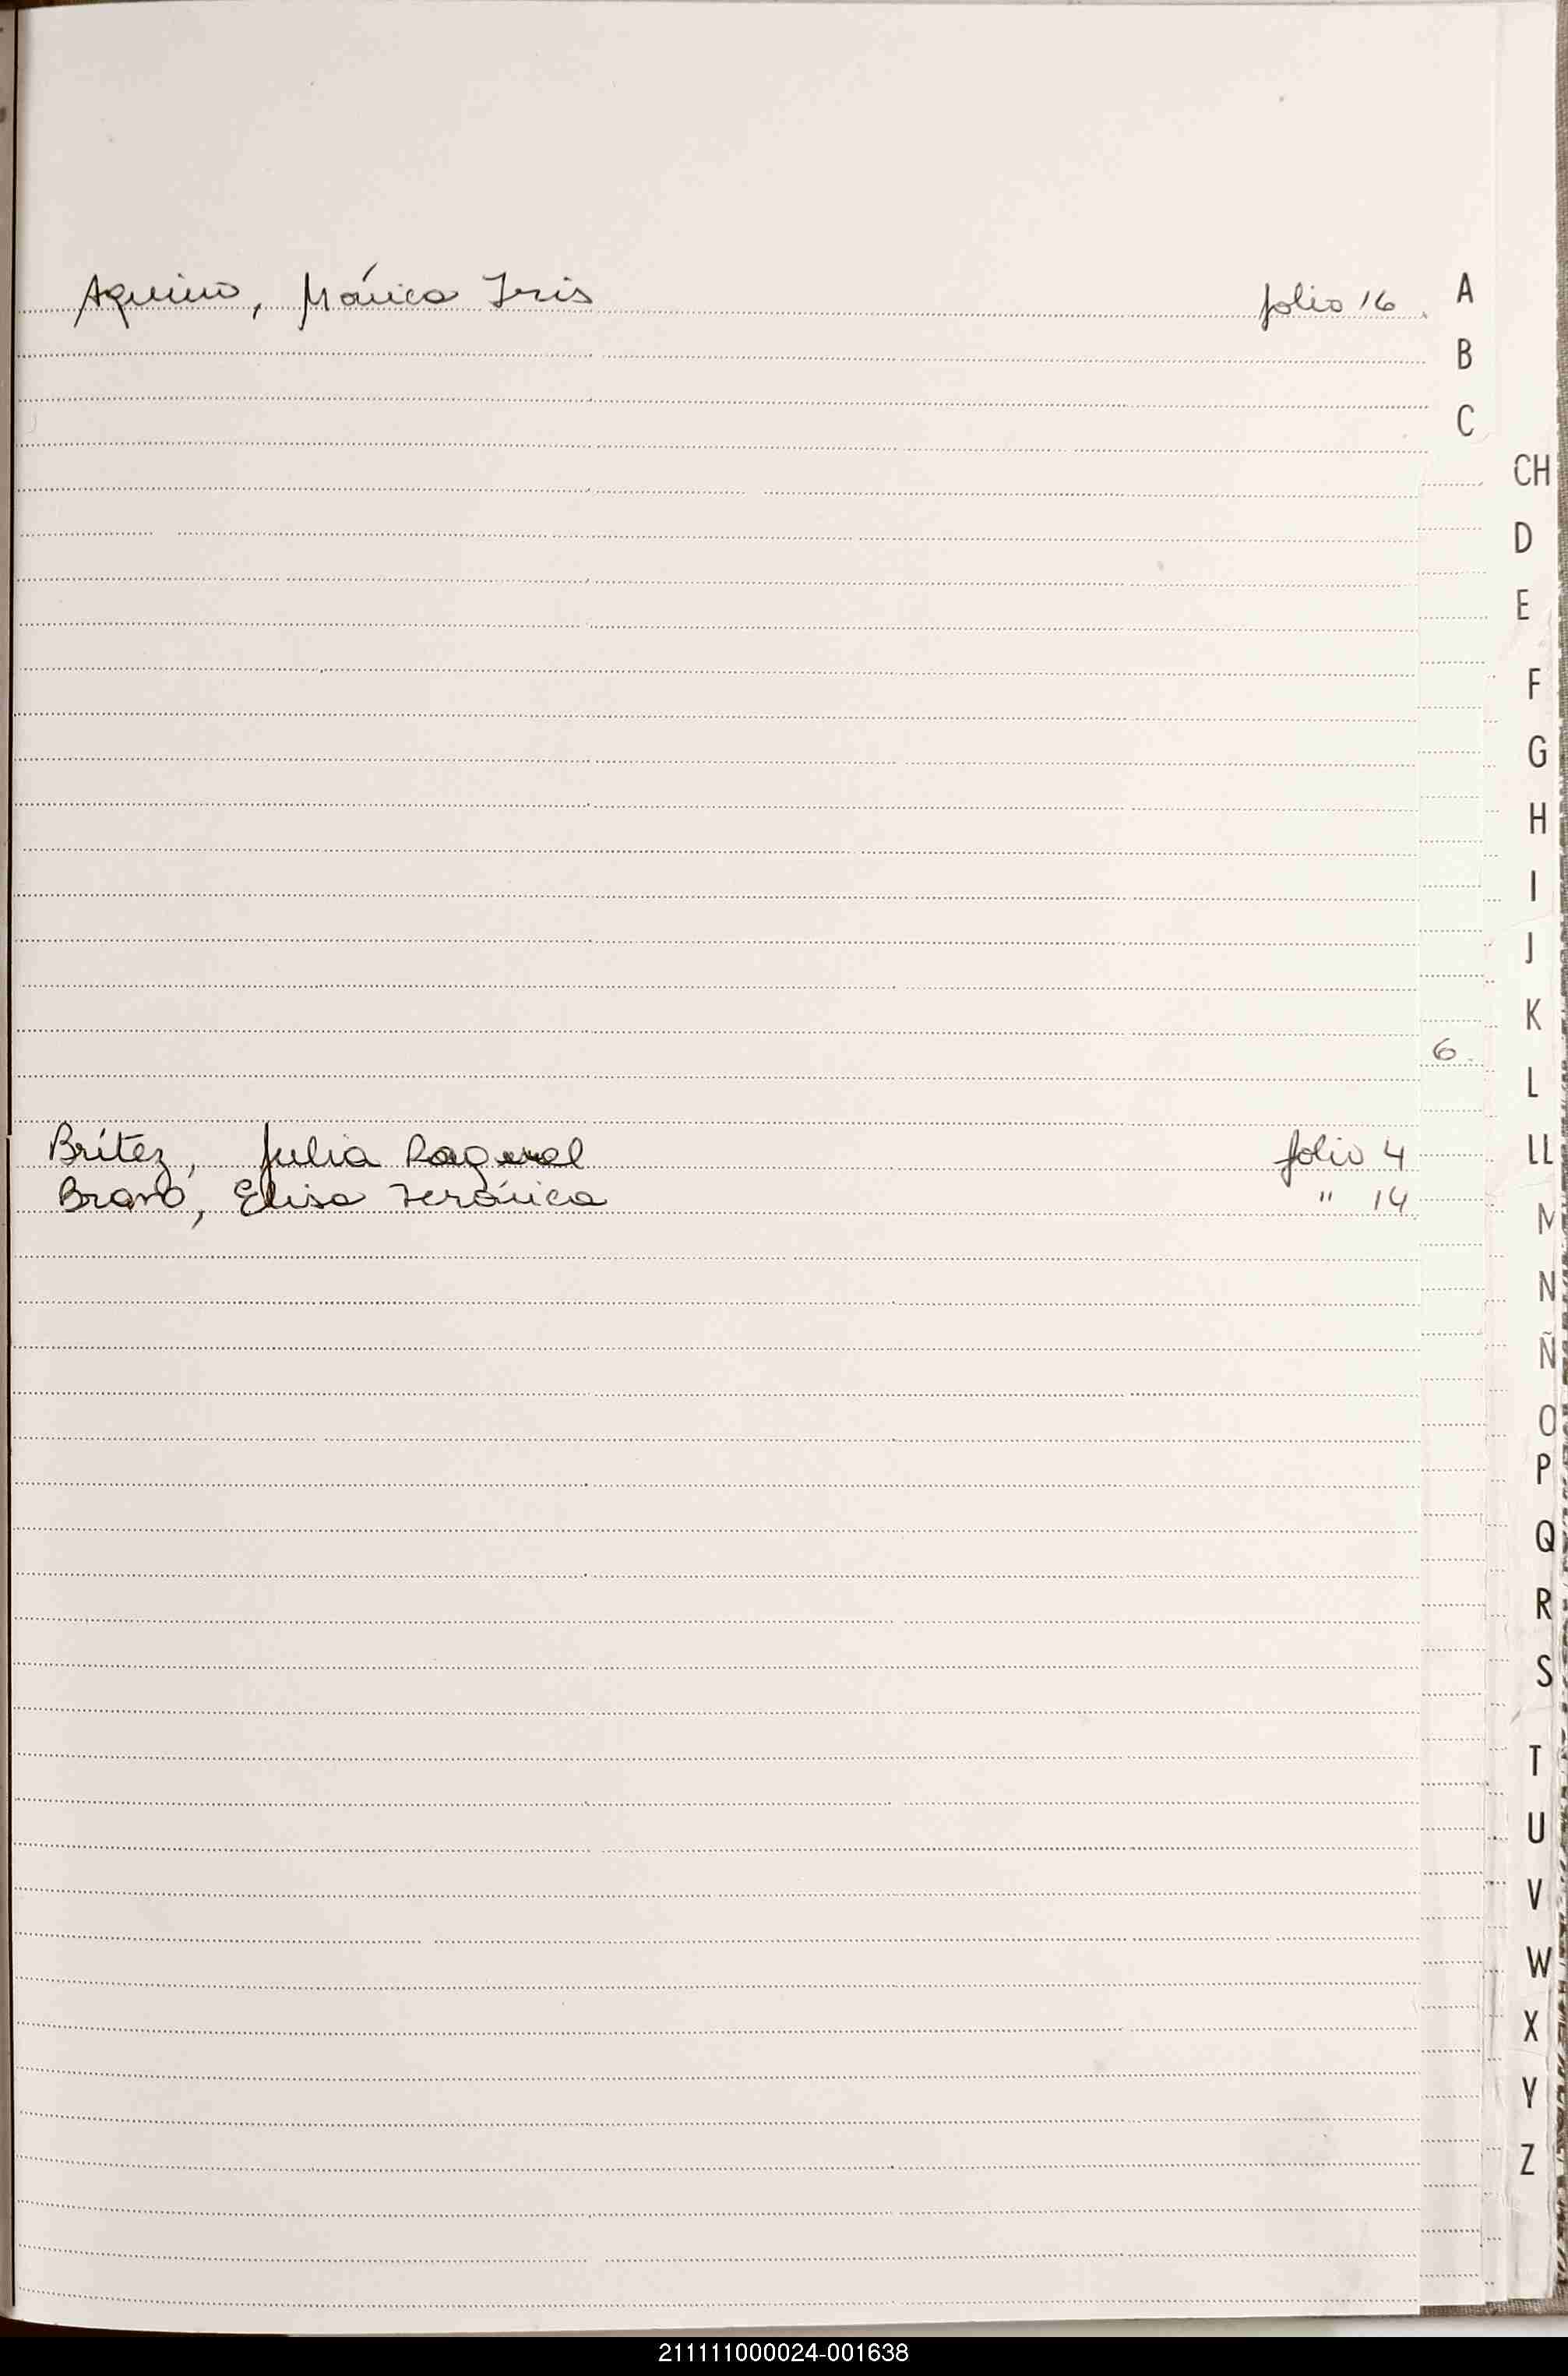 Aquino, Mónica Iris folio 16
A
B
C
CH
D
E
F
G
H
I
J
K
6
L
Brítez, Julia Raquel folio 4
LL
Bravo, Elisa Verónica " 14
M
N
Ñ
O
P
Q
R
S
T
U
V
W
X
Y
Z
211111000024-001638